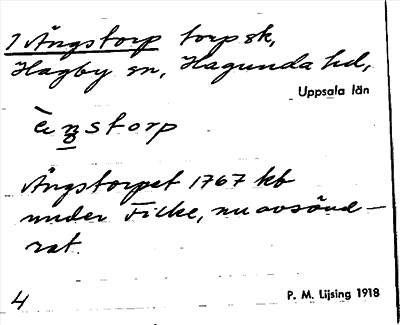 1 Ängstorp torp sk,
Hagby sn, Hagunda hd,
Uppsala län
ὲŋstorp
Ängstorpet 1767 kb
under Focke, nu avsönd-
rat.
4
P. M. Lijsing 1918